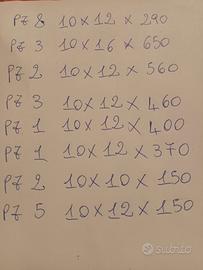 PZ 8 10×12 × 290
PZ 3 10×16 × 650
PZ 2 10×12 × 560
PZ 3 10×12 × 460
PZ 1 10×12 × 400
PZ 1 10×12 × 370
PZ 2 10×10 × 150
PZ 5 10×12 × 150
subito